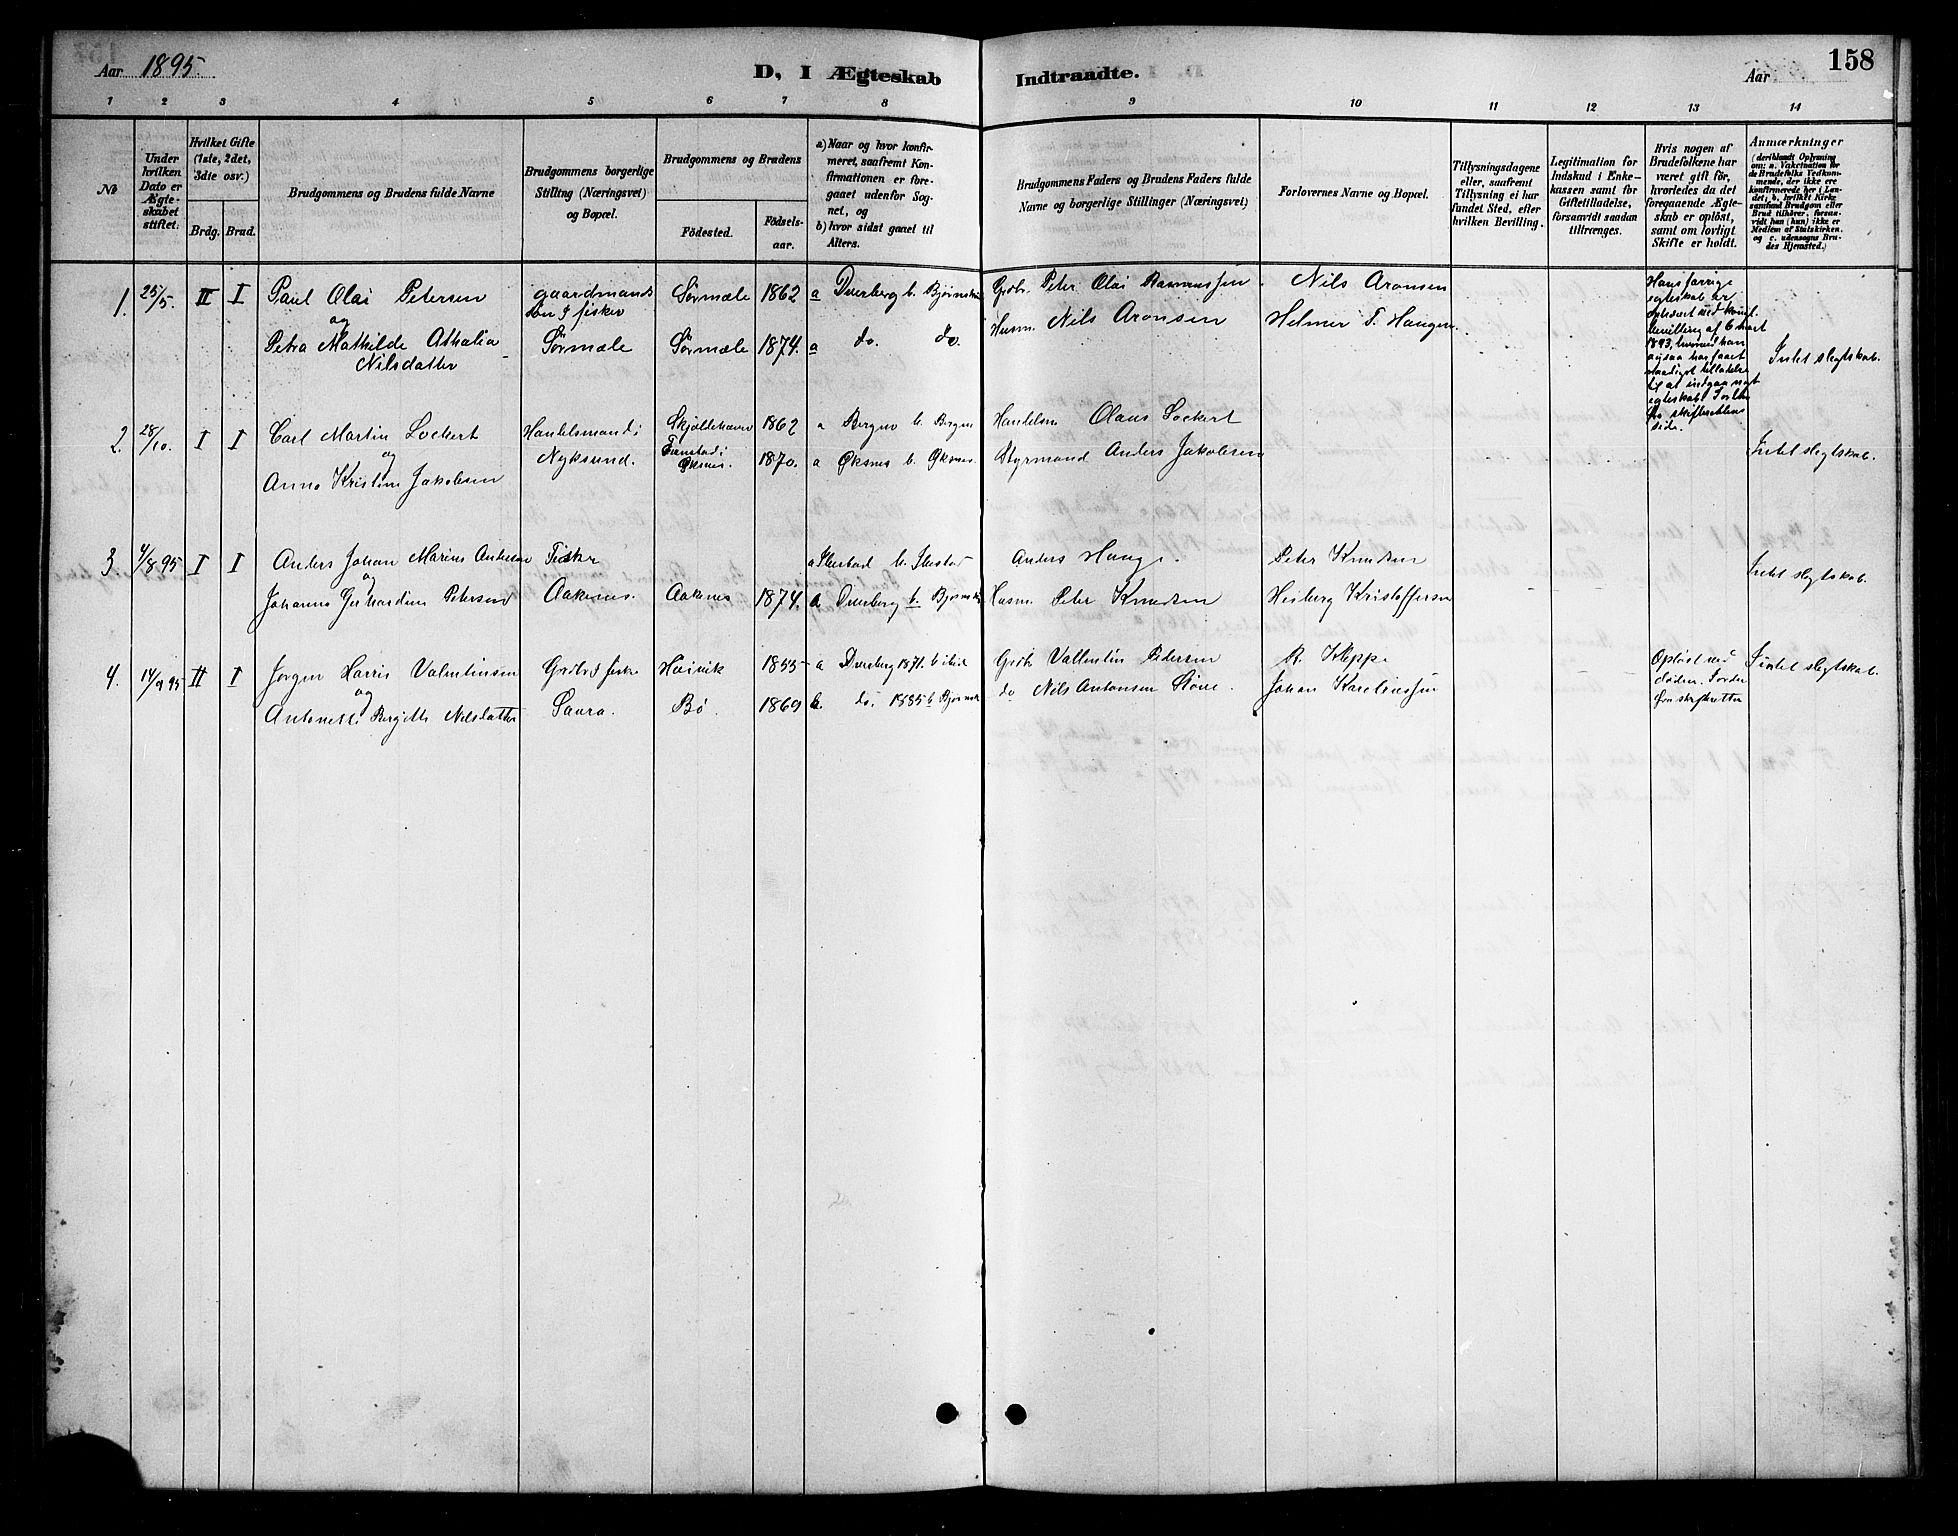 Aar 1895.
D, I Ægteskab Indtraadte.
Aar
158
1 2 3 4 5 6 7 8 9 10 11 12 13 14
No
Under hvilken Dato er Ægteskabet stiftet.
Hvilket Gifte (1ste, 2det, 3die osv.)
Brdg. Brud.
Brudgommens og Brudens fulde Navne
Brudgommens borgerlige Stilling (Næringsvei) og Bopæl.
Brudgommens og Brudens
Födested.
Födselsaar.
a) Naar og hvor konfirmeret, saafremt Konfirmationen er foregaaet udenfor Sognet, og
b) hvor sidst gaaet til Alters.
Brudgommens Faders og Brudens Faders fulde Navne og borgerlige Stillinger (Næringsvei)
Forlovernes Navne og Bopæl.
Tillysningsdagene eller, saafremt Tillysning ei har fundet Sted, efter hvilken Bevilling.
Legitimation for Indskud i Enkekassen samt for Giftetilladelse, forsaavidt saadan tiltrænges.
Hvis nogen af Brudefolkene har været gift för, hvorledes da det foregaaende Ægteskab er oplöst, samt om lovligt Skifte er holdt.
Anmærkninger
(deriblandt Oplysning om: a. Vakcination for de Brudefolks Vedkommende, der ikke ere konfirmerede her i Landet; b. hvilket Kirkesamfund Brudgom eller Brud tilhörer, forsaavidt han (hun) ikke er Medlem af Statskirken, og c. udensogns Brudes Hjemsted.)
1. 25/5. II I Paul Olai Petersen gaardmands Sørmæle 1862 a Dverberg b. Bjørnskin Grdbr. Peter Olai Rasmussen Nils Aronsen
og søn & fisker Husm. Nils Aronsen Helmer T. Haugen
Petra Mathilde Athalia Sørmæle Sørmæle 1874. a do. do.
Nilsdatter
Hans forrige
egteskab er
ophævet med kongl.
bevilling af 6 mart
1893, hvorved han
ogsaa har faaet
naadigst tilladelse
til at indgaa nyt
egteskab.
skifterettens
side.
Intet slegtskab.
2. 28/10. I I Carl Martin Lockert Handelsmand i 1862 a Bergen b. Bergen Handelsm Olaus Lockert
og Nyksund. Tunstad i
Øksnes. 1870. a Øksnes b. Øksnes. Styrmand Anders Jakobsen
Anna Kristine Jakobsen
Intet slegtskab.
3 4/8 95 I I Anders Johan Marius Andersen Fisker a Ibestad b. Ibestad Anders Hauge. Peter Knudsen
og
Johanna Gerhardine Petersen Aaknes. Aaknes 1874. a Dverberg b. Bjørnskin Husm. Peter Knudsen Heiberg Kristoffersen
Intet slegtskab.
4. 14/9 95 II I Jørgen Harris Valentinsen Grdbr & fisker Høivik 1855 a Dverberg 1871. b ibid Grdbr Vallentin Pedersen R. Kleppe
og Saura. Bø 1869 do. 1885 b Bjørnsk do Nils Antonsen Johan Kareliussen
Antonette Bergitte Nilsdatter
Opløst ved
døden.
skifteretten
Intet slegtskab.